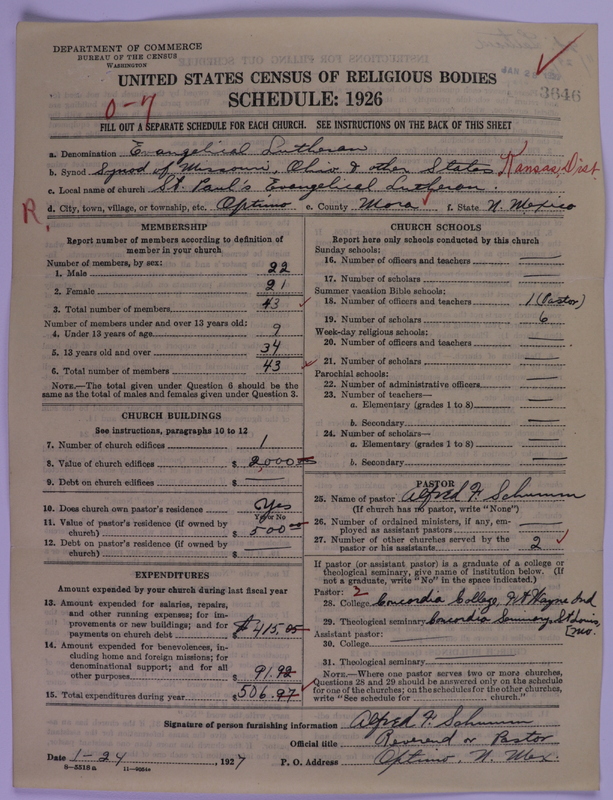 DEPARTMENT OF COMMERCE
BUREAU OF THE CENSUS
WASHINGTON
UNITED STATES CENSUS OF RELIGIOUS BODIES
SCHEDULE: 1926
3646
0-7
FILL OUT A SEPARATE SCHEDULE FOR EACH CHURCH. SEE INSTRUCTIONS ON THE BACK OF THIS SHEET
a. Denomination Evangelical Lutheran
b. Synod Synod of Missouri, Ohio & other States Kansas Dist.
c. Local name of church St. Paul's Evangelical Lutheran.
R. d. City, town, village, or township, etc. Optimo e. County Mora f. State N. Mexico
MEMBERSHIP
Report number of members according to definition of
member in your church
Number of members, by sex:
1. Male 22
2. Female 21
3. Total number of members 43
Number of members under and over 13 years old:
4. Under 13 years of age 9
5. 13 years old and over 34
6. Total number of members 43
NOTE.—The total given under Question 6 should be the
same as the total of males and females given under Question 3.
CHURCH BUILDINGS
See instructions, paragraphs 10 to 12
7. Number of church edifices 1
8. Value of church edifices $ 2,000
9. Debt on church edifices $
10. Does church own pastor's residence Yes
Yes or No
11. Value of pastor's residence (if owned by
church) $ 500
12. Debt on pastor's residence (if owned by
church) $
EXPENDITURES
Amount expended by your church during last fiscal year
13. Amount expended for salaries, repairs,
and other running expenses; for im-
provements or new buildings; and for
payments on church debt $ 415.05
14. Amount expended for benevolences, in-
cluding home and foreign missions; for
denominational support; and for all
other purposes 91.92
15. Total expenditures during year $ 506.97
CHURCH SCHOOLS
Report here only schools conducted by this church
Sunday schools:
16. Number of officers and teachers
17. Number of scholars
Summer vacation Bible schools:
18. Number of officers and teachers 1 (Pastor)
19. Number of scholars 6
Week-day religious schools:
20. Number of officers and teachers
21. Number of scholars
Parochial schools:
22. Number of administrative officers
23. Number of teachers—
a. Elementary (grades 1 to 8)
b. Secondary
24. Number of scholars—
a. Elementary (grades 1 to 8)
b. Secondary
PASTOR
25. Name of pastor Alfred F. Schumm
(If church has no pastor, write "None")
26. Number of ordained ministers, if any, em-
ployed as assistant pastors
27. Number of other churches served by the
pastor or his assistants 2
If pastor (or assistant pastor) is a graduate of a college or
theological seminary, give name of institution below. (If
not a graduate, write "No" in the space indicated.)
Pastor: 2
28. College Concordia College, Ft. Wayne Ind
29. Theological seminary Concordia Seminary, St Louis,
Mo.
Assistant pastor:
30. College
31. Theological seminary
NOTE.—Where one pastor serves two or more churches,
Questions 28 and 29 should be answered only on the schedule
for one of the churches; on the schedules for the other churches,
write "See schedule for church."
Signature of person furnishing information Alfred F. Schumm
Official title Reverend or Pastor
Date 1-24, 1927 P. O. Address Optimo, N. Mex.
8-5518a